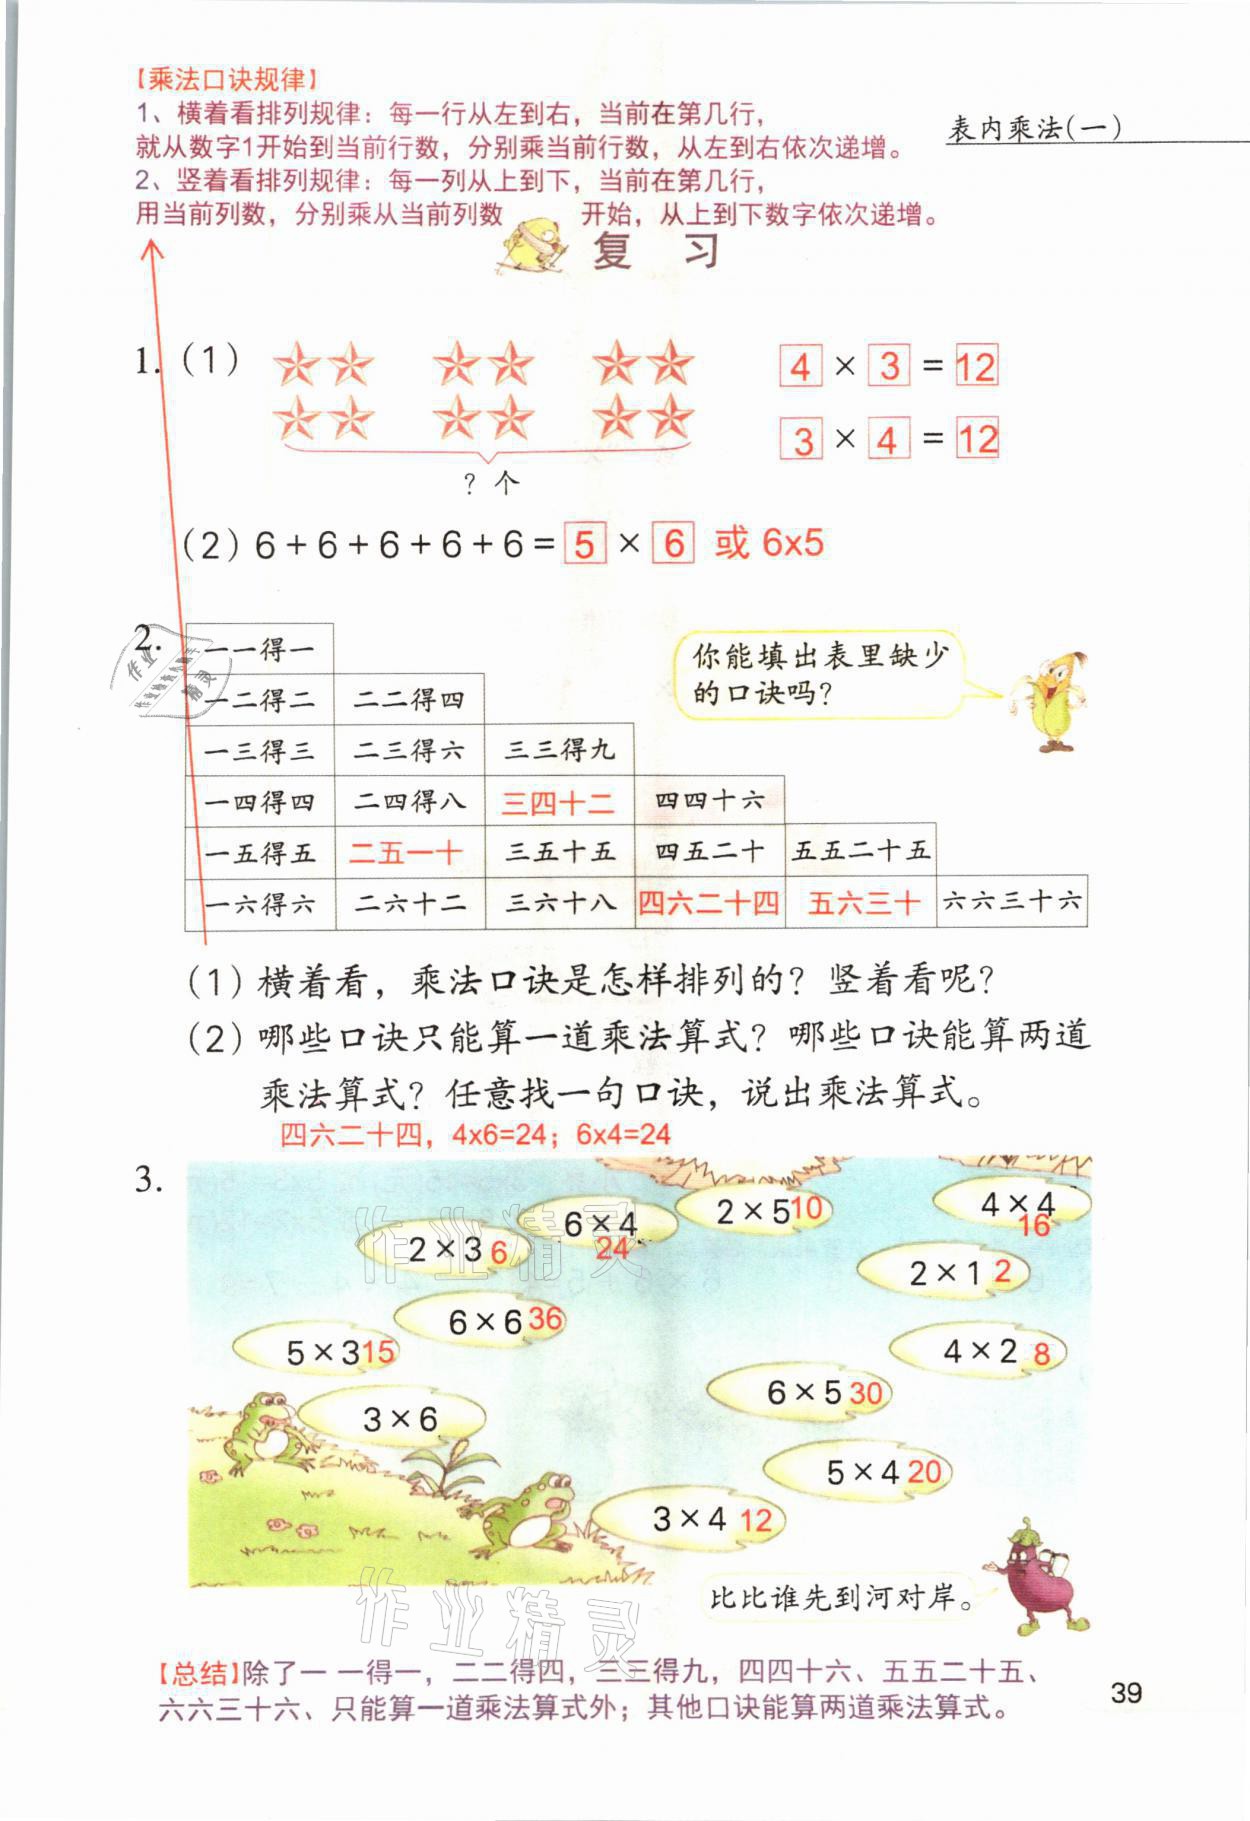 【乘法口诀规律】
1、横着看排列规律：每一行从左到右，当前在第几行，
就从数字1开始到当前行数，分别乘当前行数，从左到右依次递增。
2、竖着看排列规律：每一列从上到下，当前在第几行，
用当前列数，分别乘从当前列数 开始，从上到下数字依次递增。
表内乘法(一)
复 习
1.(1)
4 × 3 = 12
3 × 4 = 12
? 个
(2) 6+6+6+6+6= 5 × 6 或 6x5
2.
你能填出表里缺少
的口诀吗?
一一得一
一二得二 二二得四
一三得三 二三得六 三三得九
一四得四 二四得八 三四十二 四四十六
一五得五 二五一十 三五十五 四五二十 五五二十五
一六得六 二六十二 三六十八 四六二十四 五六三十 六六三十六
(1) 横着看，乘法口诀是怎样排列的? 竖着看呢?
(2) 哪些口诀只能算一道乘法算式? 哪些口诀能算两道
乘法算式? 任意找一句口诀，说出乘法算式。
四六二十四，4x6=24；6x4=24
3.
2×3 6
6×4 24
2×5 10
4×4 16
2×1 2
6×6 36
5×3 15
4×2 8
6×5 30
3×6
5×4 20
3×4 12
比比谁先到河对岸。
【总结】除了一 一得一，二二得四，三三得九，四四十六、五五二十五、
六六三十六、只能算一道乘法算式外；其他口诀能算两道乘法算式。
39
作业精灵
作业精灵
作业
精灵